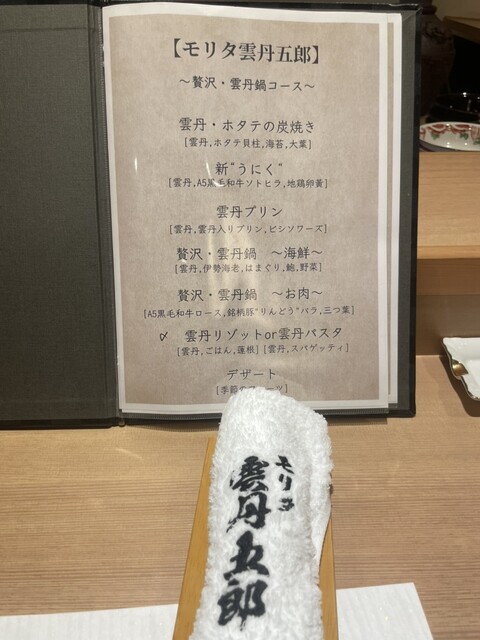 【モリタ雲丹五郎】
～贅沢・雲丹鍋コース～
雲丹・ホタテの炭焼き
[雲丹,ホタテ貝柱,海苔,大葉]
新"うにく"
[雲丹,A5黒毛和牛ソトヒラ,地鶏卵黄]
雲丹プリン
[雲丹,雲丹入りプリン,ビシソワーズ]
贅沢・雲丹鍋 ～海鮮～
[雲丹,伊勢海老,はまぐり,鮑,野菜]
贅沢・雲丹鍋 ～お肉～
[A5黒毛和牛ロース,銘柄豚"りんどう"バラ,三つ葉]
〆 雲丹リゾットor雲丹パスタ
[雲丹,ごはん,蓮根] [雲丹,スパゲッティ]
デザート
[季節の ーツ]
モリタ
雲丹五郎